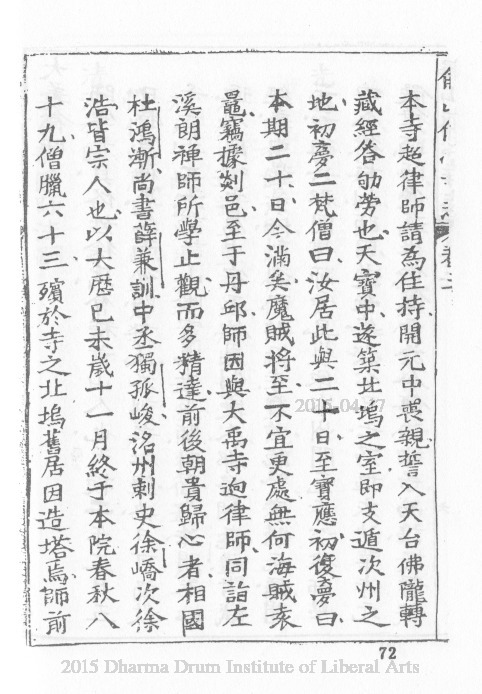 本寺超律師請為住持開元中喪親誓入天台佛隴轉
藏經答劬勞也天寶中遂築北塢之室即支遁沃州之
地初夢二梵僧曰汝居此與二十日至寶應初復夢曰
本期二十日今滿矣魔賊將至不宜更處無何海賊袁
鼂竊據剡邑至于丹邱師因與大禹寺逈律師同詣左
溪朗禪師所學止觀而多精達前後朝貴歸心者相國
杜鴻漸尚書薛兼訓中丞獨孤峻洺州刺史徐嶠次徐
浩皆宗人也以大歷己未歲十一月終于本院春秋八
十九僧臘六十三殯於寺之北塢舊居因造塔焉師前
72
2015.04.17
2015 Dharma Drum Institute of Liberal Arts